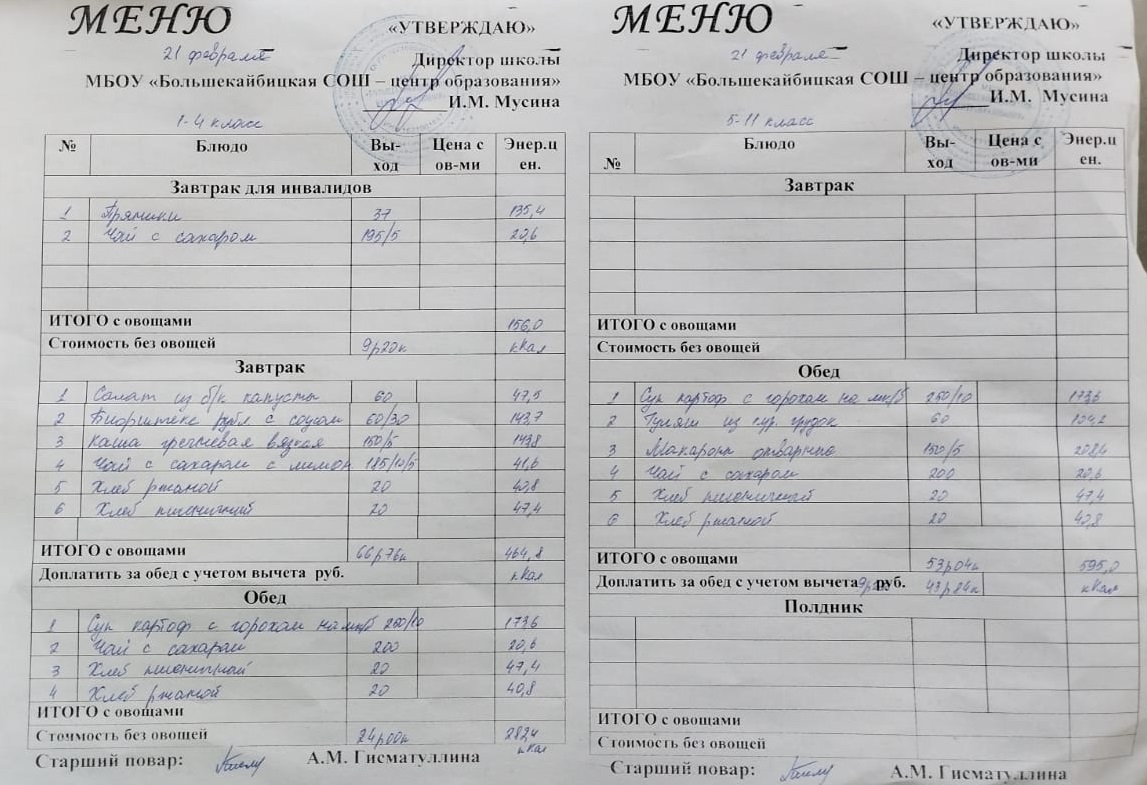 МЕНЮ
«УТВЕРЖДАЮ»
21 февраля
Директор школы
МБОУ «Большекайбицкая СОШ – центр образования»
И.М. Мусина
1-4 класс
№ Блюдо Вы-ход Цена с ов-ми Энер.ц ен.
Завтрак для инвалидов
1 Пряники 37 135,4
2 Чай с сахаром 195/5 20,6
ИТОГО с овощами 156,0
Стоимость без овощей 9р20к кКал
Завтрак
1 Салат из б/к капусты 60 47,5
2 Бифштекс рубл с соусом 60/30 143,7
3 Каша гречневая вязкая 150/5 143,8
4 Чай с сахаром с лимон 185/10/5 41,6
5 Хлеб ржаной 20 40,8
6 Хлеб пшеничный 20 47,4
ИТОГО с овощами 66р76к 464,8
Доплатить за обед с учетом вычета руб. кКал
Обед
1 Суп картоф с горохом на мк/б 250/10 173,6
2 Чай с сахаром 200 20,6
3 Хлеб пшеничный 20 47,4
4 Хлеб ржаной 20 40,8
ИТОГО с овощами
Стоимость без овощей 24р00к 282,4
кКал
Старший повар: А.М. Гисматуллина
МЕНЮ
«УТВЕРЖДАЮ»
21 февраля
Директор школы
МБОУ «Большекайбицкая СОШ – центр образования»
И.М. Мусина
5-11 класс
№ Блюдо Вы-ход Цена с ов-ми Энер.ц ен.
Завтрак
ИТОГО с овощами
Стоимость без овощей
Обед
1 Суп картоф с горохом на мк/б 250/10 173,6
2 Гуляш из кур. грудок 60 104,2
3 Макароны отварные 150/5 208,4
4 Чай с сахаром 200 20,6
5 Хлеб пшеничный 20 47,4
6 Хлеб ржаной 20 40,8
ИТОГО с овощами 53р04к 595,0
Доплатить за обед с учетом вычета руб. 43р84к кКал
Полдник
ИТОГО с овощами
Стоимость без овощей
Старший повар: А.М. Гисматуллина